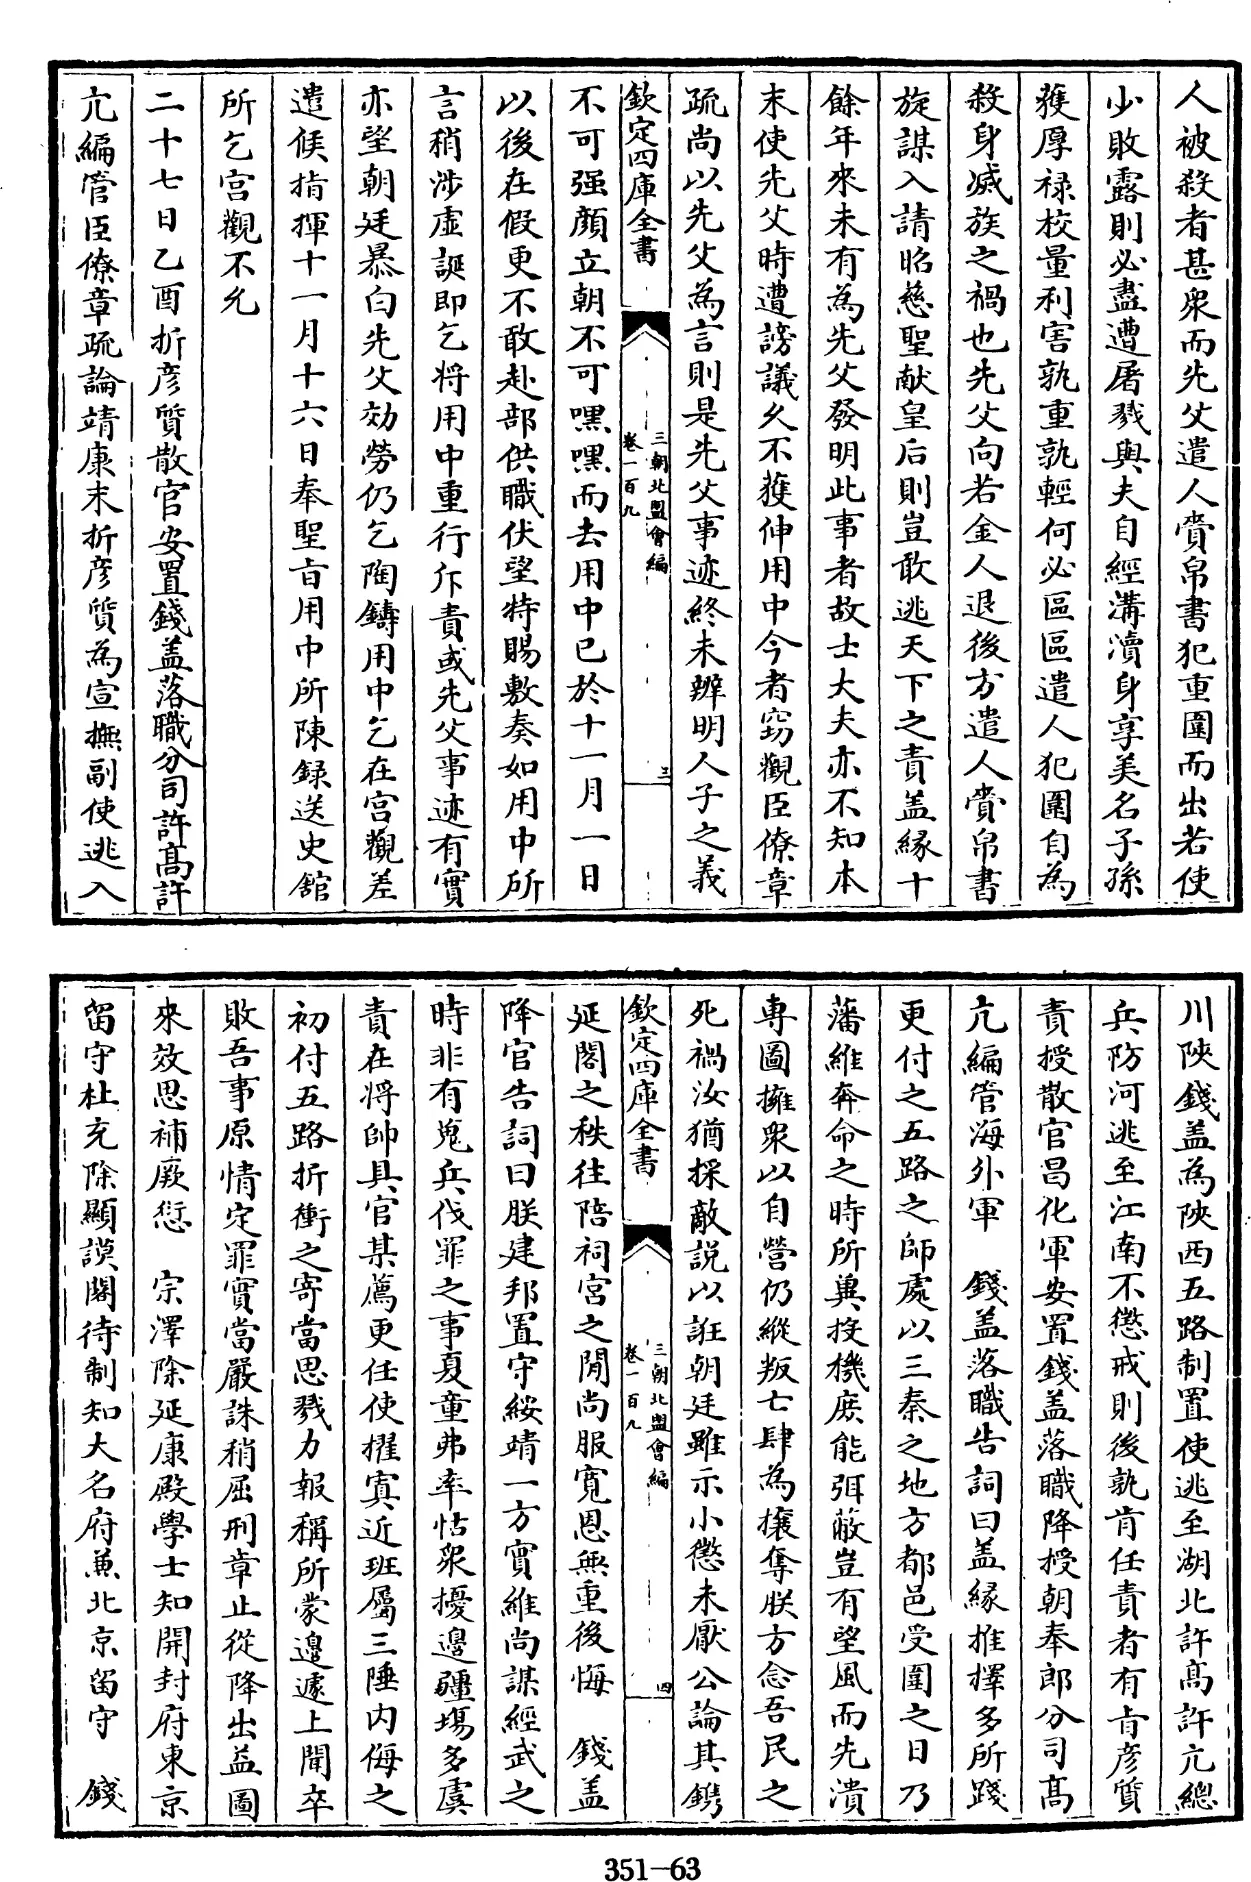 人被殺者甚衆而先父遣人賫帛書犯重圍而出若使
少敗露則必盡遭屠戮與夫自經溝瀆身享美名子孫
獲厚禄校量利害孰重孰輕何必區區遣人犯圍自為
殺身滅族之禍也先父向若金人退後方遣人賫帛書
旋謀入請昭慈聖献皇后則豈敢逃天下之責盖縁十
餘年來未有為先父發明此事者故士大夫亦不知本
末使先父時遭謗議久不獲伸用中今者窃觀臣僚章
疏尚以先父為言則是先父事迹終未辨明人子之義
欽定四庫全書
三朝北盟會編
卷一百九
三
不可强顔立朝不可嘿嘿而去用中已於十一月一日
以後在假更不敢赴部供職伏望特賜敷奏如用中所
言稍涉虚誕即乞将用中重行斥責或先父事迹有實
亦望朝廷暴白先父効勞仍乞陶鑄用中乞在宫觀差
遣候指揮十一月十六日奉聖㫖用中所陳録送史館
所乞宫觀不允
二十七日乙酉折彦質散官安置錢盖落職分司許髙許
亢編管臣僚章疏論靖康末折彦質為宣撫副使逃入
川陜錢盖為陜西五路制置使逃至湖北許髙許亢總
兵防河逃至江南不懲戒則後孰肯任責者有㫖彦質
責授散官昌化軍安置錢盖落職降授朝奉郎分司髙
亢編管海外軍　錢盖落職告詞曰盖縁推擇多所踐
更付之五路之師處以三秦之地方都邑受圍之日乃
藩維奔命之時所兾投機庶能弭敝豈有望風而先潰
専圖擁衆以自營仍縱叛亡肆為攘奪朕方念吾民之
死禍汝猶採敵説以誑朝廷雖示小懲未厭公論其鐫
欽定四庫全書
三朝北盟會編
卷一百九
四
延閣之秩往陪祠宫之閒尚服寛恩無重後悔　錢盖
降官告詞曰朕建邦置守綏靖一方實維尚謀經武之
時非有鬼兵伐罪之事夏童弗率怙衆擾邊疆埸多虞
責在将帥具官某薦更任使擢寘近班屬三陲内侮之
初付五路折衝之寄當思戮力報稱所蒙邊遽上聞卒
敗吾事原情定罪實當嚴誅稍屈刑章止從降出益圖
來效思補厥愆　宗澤除延康殿學士知開封府東京
留守杜充除顯謨閣待制知大名府兼北京留守　錢
351-63